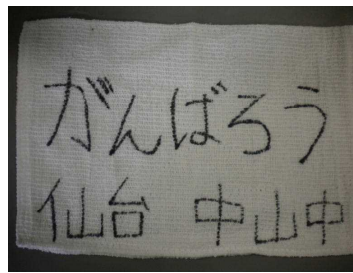 がんばろう
仙台 中山中